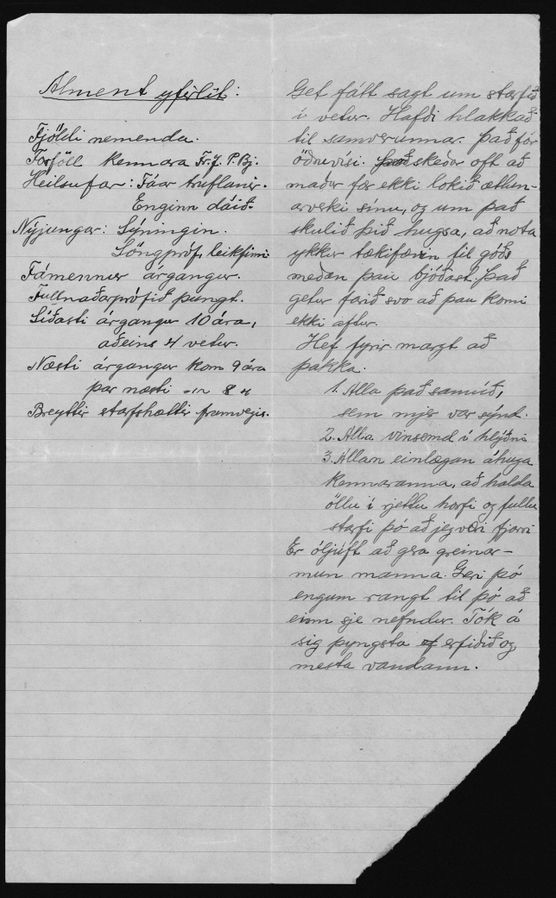 Alment yfirlit:
Fjöldi nemenda.
Forföll kennara Fr.J. P.Bj.
Heilsufar: Fáar truflanir.
Enginn dáið.
Nýjungar: Sýningin.
Söngpróf, leikfimi
Fámennur árgangur.
Fullnaðarprófið þungt.
Síðasti árgangur 10 ára,
aðeins 4 vetur.
Næsti árgangur kom 9 ára
þar næsti -"- 8 "
Breyttir starfshættir framvegis.
Get fátt sagt um starfið
í vetur. Hafði hlakkað
til samverunnar. Það fór
öðruvísi. Það skeður oft að
maður fær ekki lokið ætlun-
arverki sínu, og um það
skulið þið hugsa, að nota
ykkur tækifærin til góðs
meðan þau bjóðast. Það
getur farið svo að þau komi
ekki aftur.
Hef fyrir margt að
þakka.
1. Alla þá samúð,
sem mjer var sýnd.
2. Alla vinsemd í hlýðni
3. Allan einlægan áhuga
kennaranna, að halda
öllu í rjettu horfi og fullu
starfi þó að jeg væri fjarri
Er óljúft að gera greinar-
mun manna. Geri þó
engum rangt til þó að
einn sje nefndur. Tók á
sig þyngsta erfiðið og
mesta vandann.